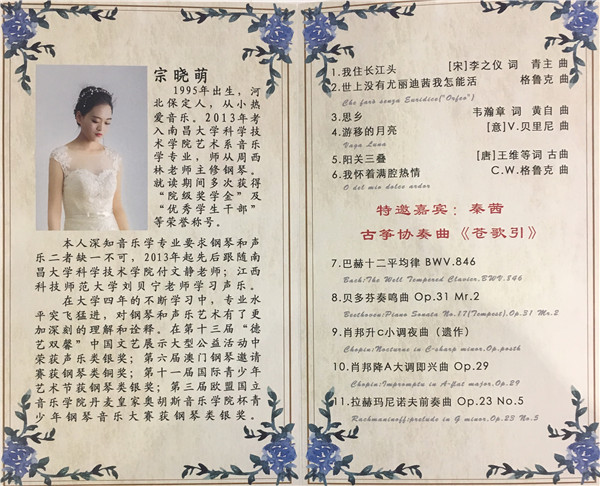 宗晓萌
1995年出生，河
北保定人，从小热
爱音乐。2013年考
入南昌大学科学技
术学院艺术系音乐
学专业，师从周西
林老师主修钢琴。
就读期间多次获得
“院级奖学金”及
“优秀学生干部”
等荣誉称号。
本人深知音乐学专业要求钢琴和声
乐二者缺一不可，2013年起先后跟随南
昌大学科学技术学院付文静老师；江西
科技师范大学刘贝宁老师学习声乐。
在大学四年的不断学习中，专业水
平突飞猛进，对钢琴和声乐艺术有了更
加深刻的理解和诠释。在第十三届“德
艺双馨”中国文艺展示大型公益活动中
荣获声乐类银奖；第六届澳门钢琴邀请
赛获钢琴类铜奖；第十一届国际青少年
艺术节获钢琴类银奖；第三届欧盟国立
音乐学院丹麦皇家奥胡斯音乐学院杯青
少年钢琴音乐大赛获钢琴类银奖。
1.我住长江头 [宋]李之仪 词 青主 曲
2.世上没有尤丽迪茜我怎能活 格鲁克 曲
Che faro senza Euridice("Orfeo")
3.思乡 韦瀚章 词 黄自 曲
4.游移的月亮 [意]V.贝里尼 曲
Vaga Luna
5.阳关三叠 [唐]王维等词 古曲
6.我怀着满腔热情 C.W.格鲁克 曲
O del mio dolce ardor
特邀嘉宾：秦茜
古筝协奏曲《苍歌引》
7.巴赫十二平均律 BWV.846
Bach:The Well Tempered Clavier,BWV.846
8.贝多芬奏鸣曲 Op.31 Mr.2
Beethoven:Piano Sonata No.17(Tempest),Op.31 Mr.2
9.肖邦升c小调夜曲（遗作）
Chopin:Nocturne in C-sharp minor,Op.posth
10.肖邦降A大调即兴曲 Op.29
Chopin:Impromptu in A-flat major,Op.29
11.拉赫玛尼诺夫前奏曲 Op.23 No.5
Rachmaninoff:prelude in G minor,Op.23 No.5